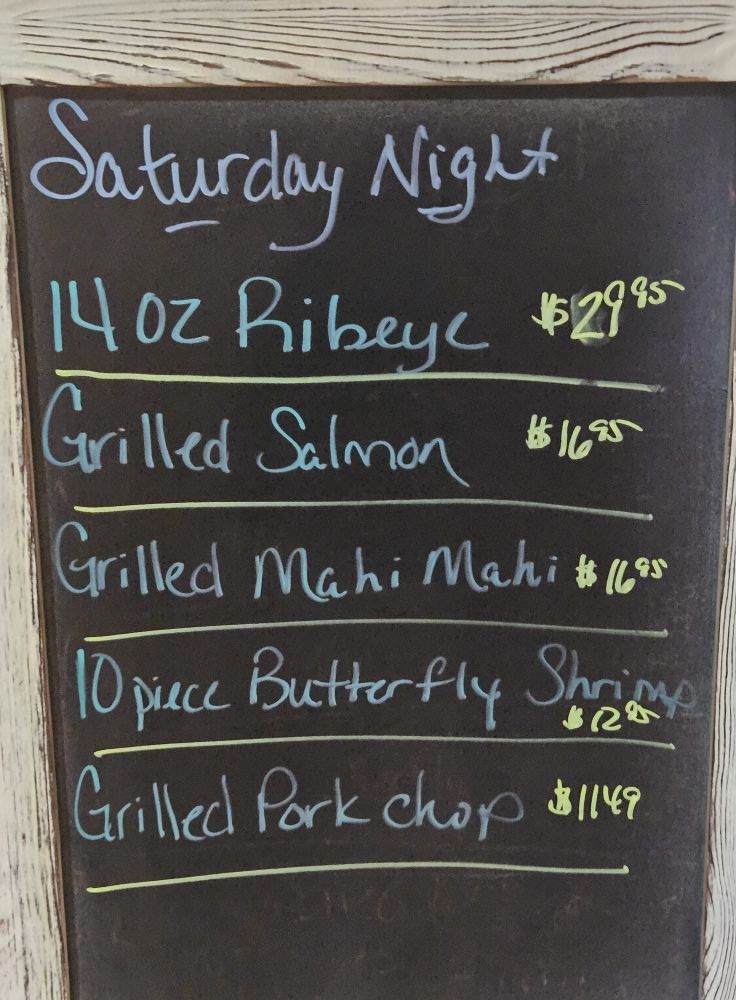 Saturday Night
14 oz Ribeye $29.95
Grilled Salmon $16.95
Grilled Mahi Mahi $16.95
10 piece Butterfly Shrimp
$12.95
Grilled Pork chop $11.49